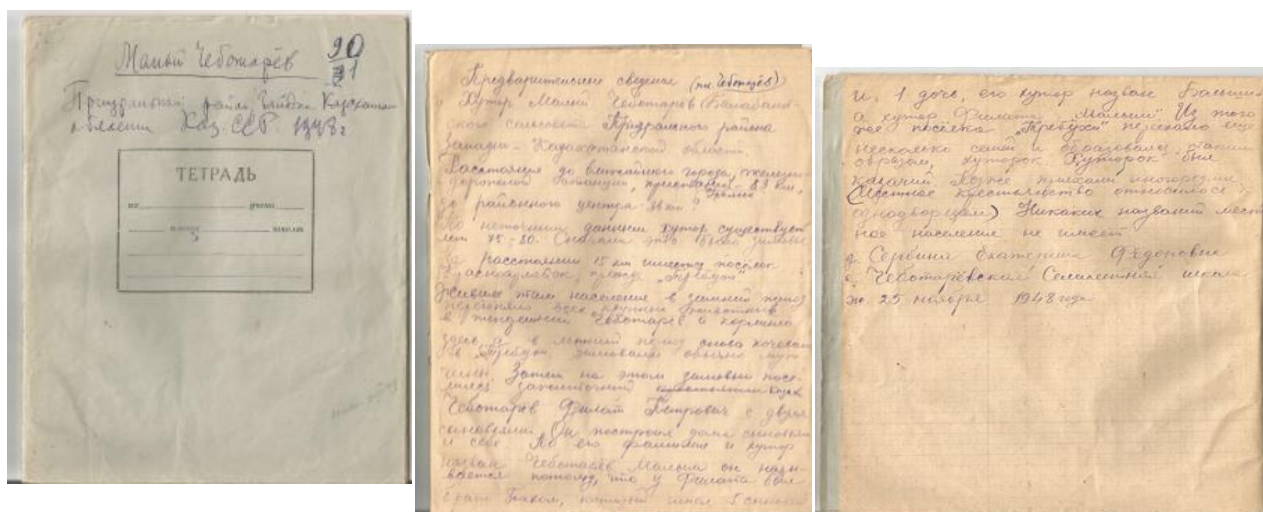 Малый Чеботарёв
90
1
Приуральный район Западно Казахстан
области Каз. ССР. 1948 г
ТЕТРАДЬ
по
учени
класса
школы
Предварительные сведения (пос. Чеботарёв)
Хутор Малый Чеботарёв
сельсовета Приурального района
Западно-Казахстанской области.
Расстояние до ближайшего города, железно-
дорожной станции, пристани - 83 км,
до районного центра
По неточным данным хутор существует
лет 75-80. Сначала это было зимовье
На расстоянии 15 км имелся посёлок
прежде „Требухи"
население в зимний период
перегоняло всех крупных животных
в Чеботарёв и кормило
здесь, а в летний период снова кочевали
в „Требухи зимовали обычно муж
чины. Затем на этом зимовье посе-
лился зажиточный казак
Чеботарёв Филат Петрович с двумя
сыновьями. Он построил дома сыновьям
и себе. По его фамилии и хутор
назван Чеботарёв. Малым он назы-
вается потому, что у Филата был
брат который имел 5 сыновей
и 1 дочь, его хутор назван Большим
а хутор Филата „Малый" Из того
же посёлка „Требухи" переехало еще
несколько семей и образовался таким
образом, хуторок. Хуторок был
казачий. Позже приехали иногородние
(Местное крестьянство относилось к
однодворцам) Никаких названий мест
ное население не имеет
Екатерина Фёдоровна
Чеботарёвская Семилетняя школа
25 ноября 1948 года